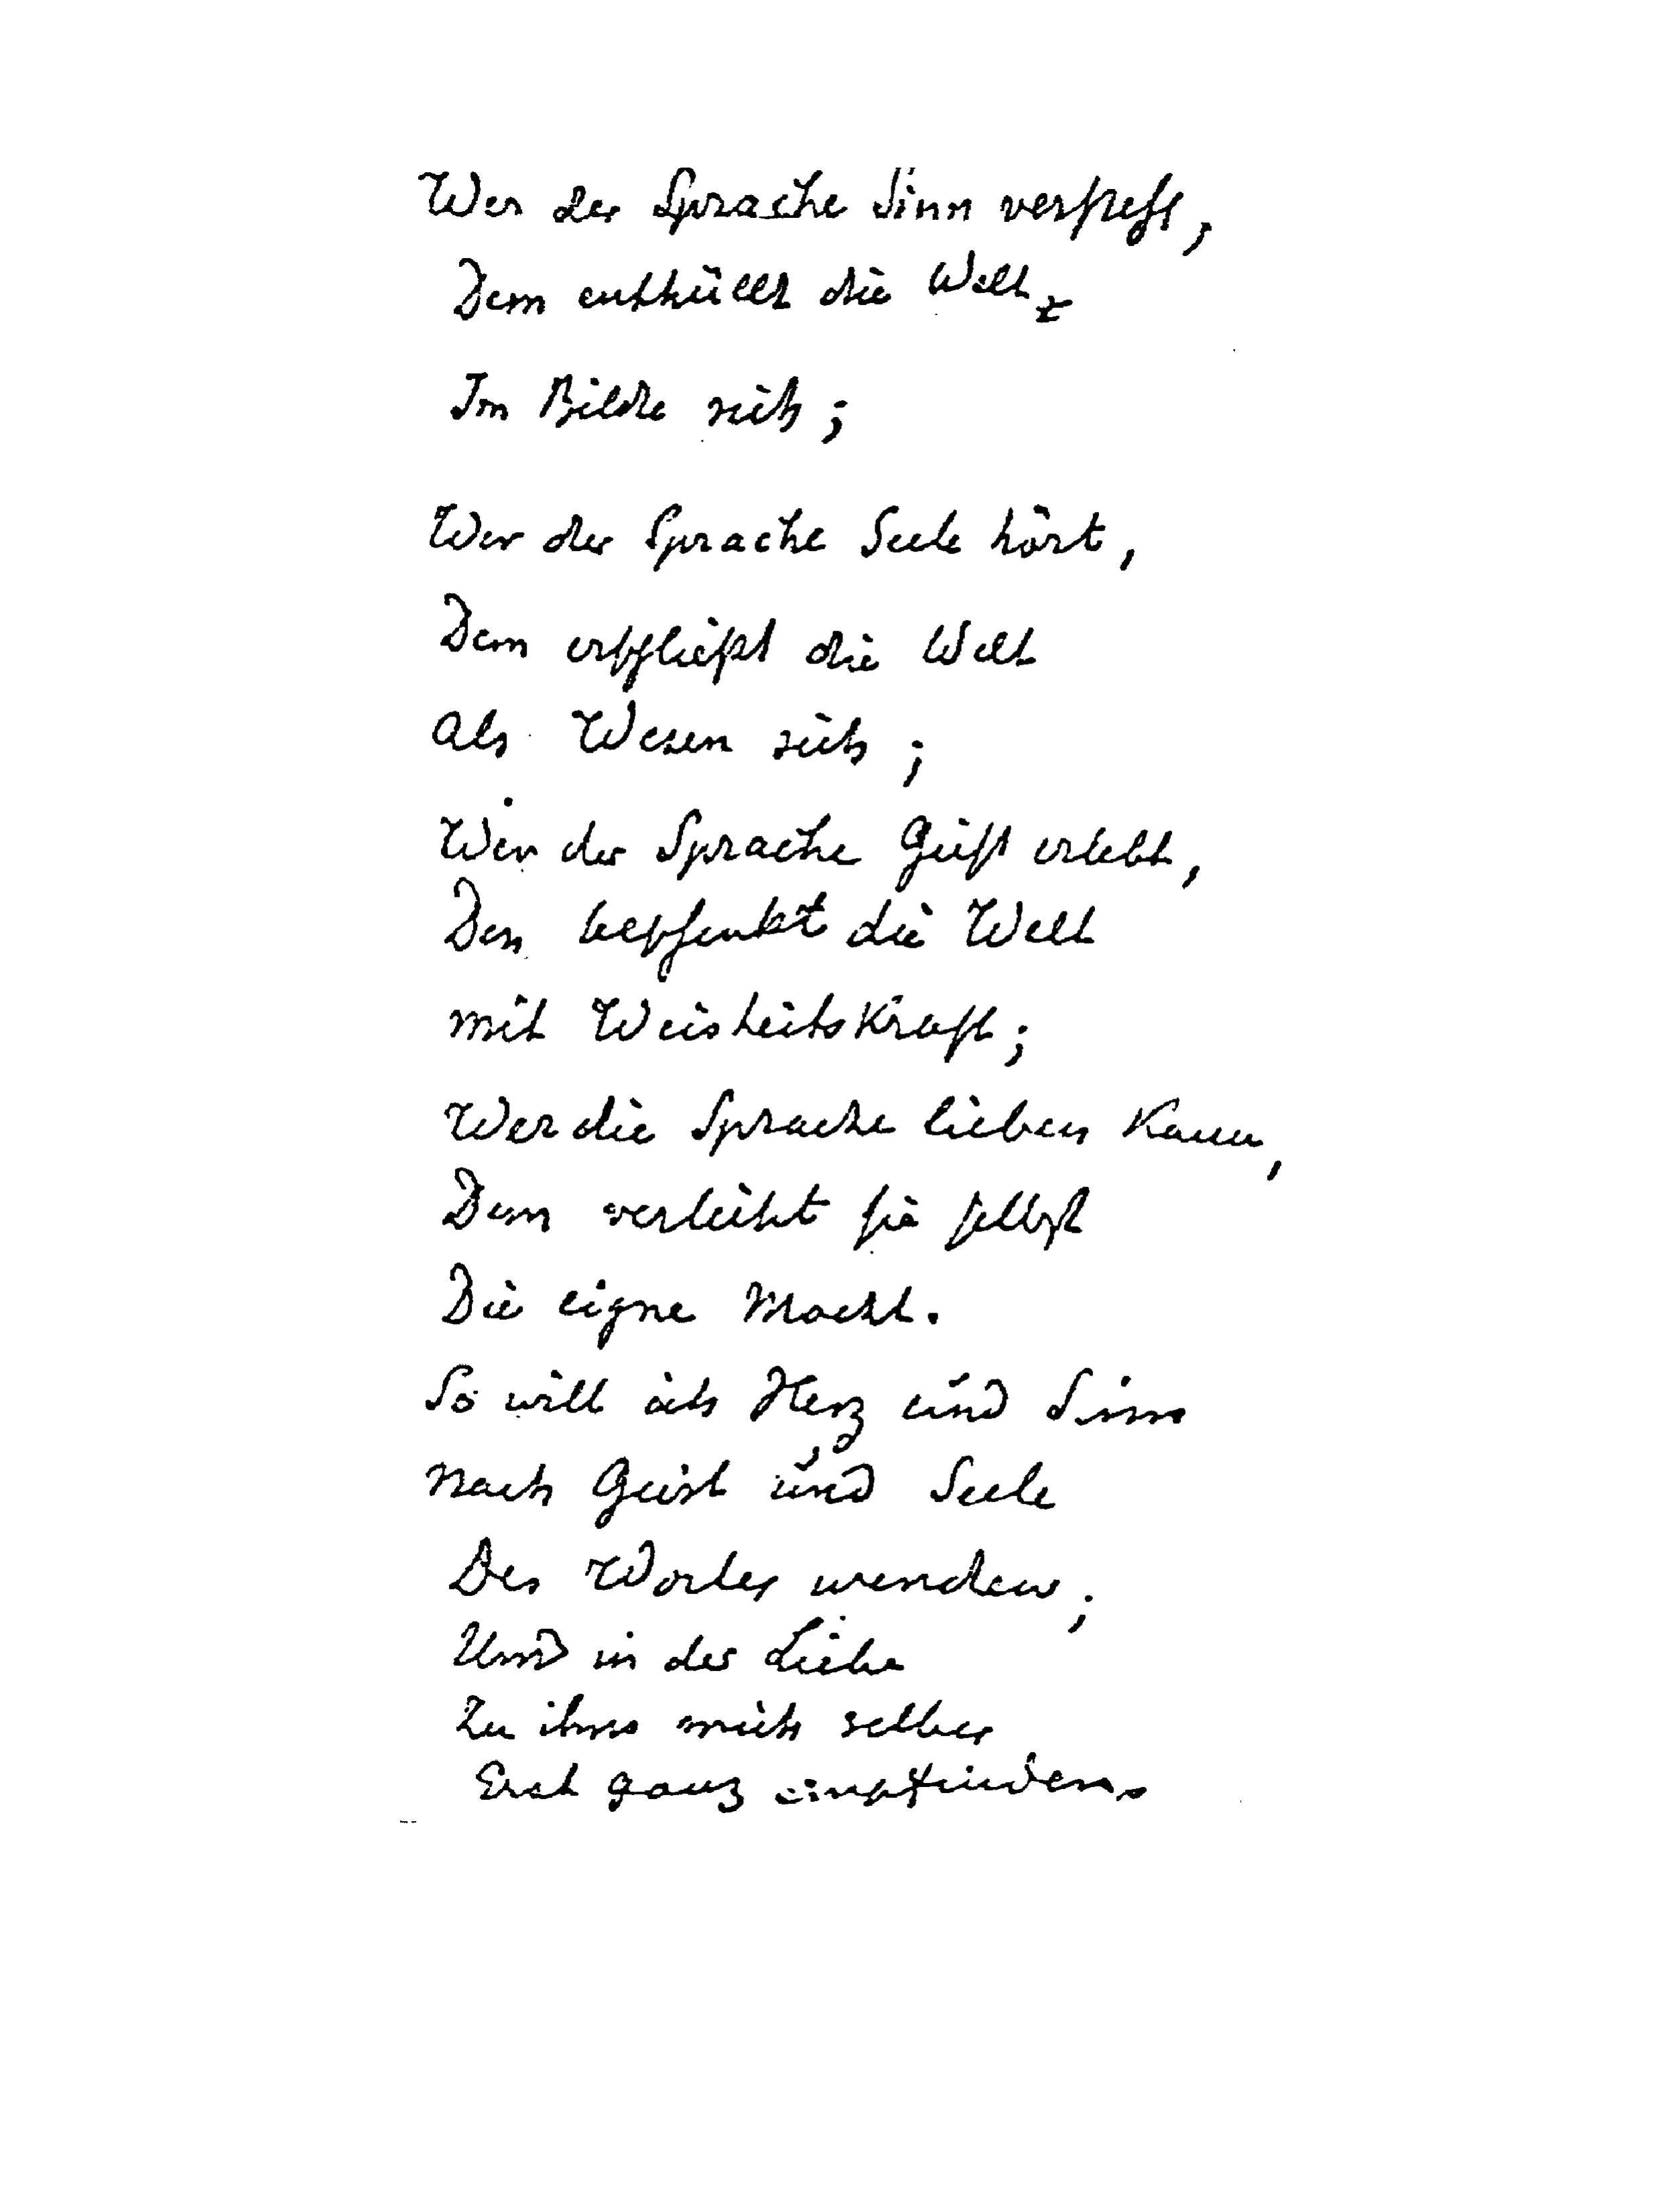 Wer der Sprache Sinn versteht,
Dem enthüllt die Welt
Im Bilde sich;
Wer der Sprache Seele hört,
Dem erschließt die Welt
Als Wesen sich;
Wer der Sprache Geist erlebt,
Den beschenkt die Welt
Mit Weisheitskraft;
Wer die Sprache lieben kann,
Dem verleiht sie selbst
Die eigne Macht.
So will ich Herz und Sinn
Nach Geist und Seele
Des Wortes wenden;
Und in der Liebe
Zu ihm mich selber
Erst ganz empfinden.